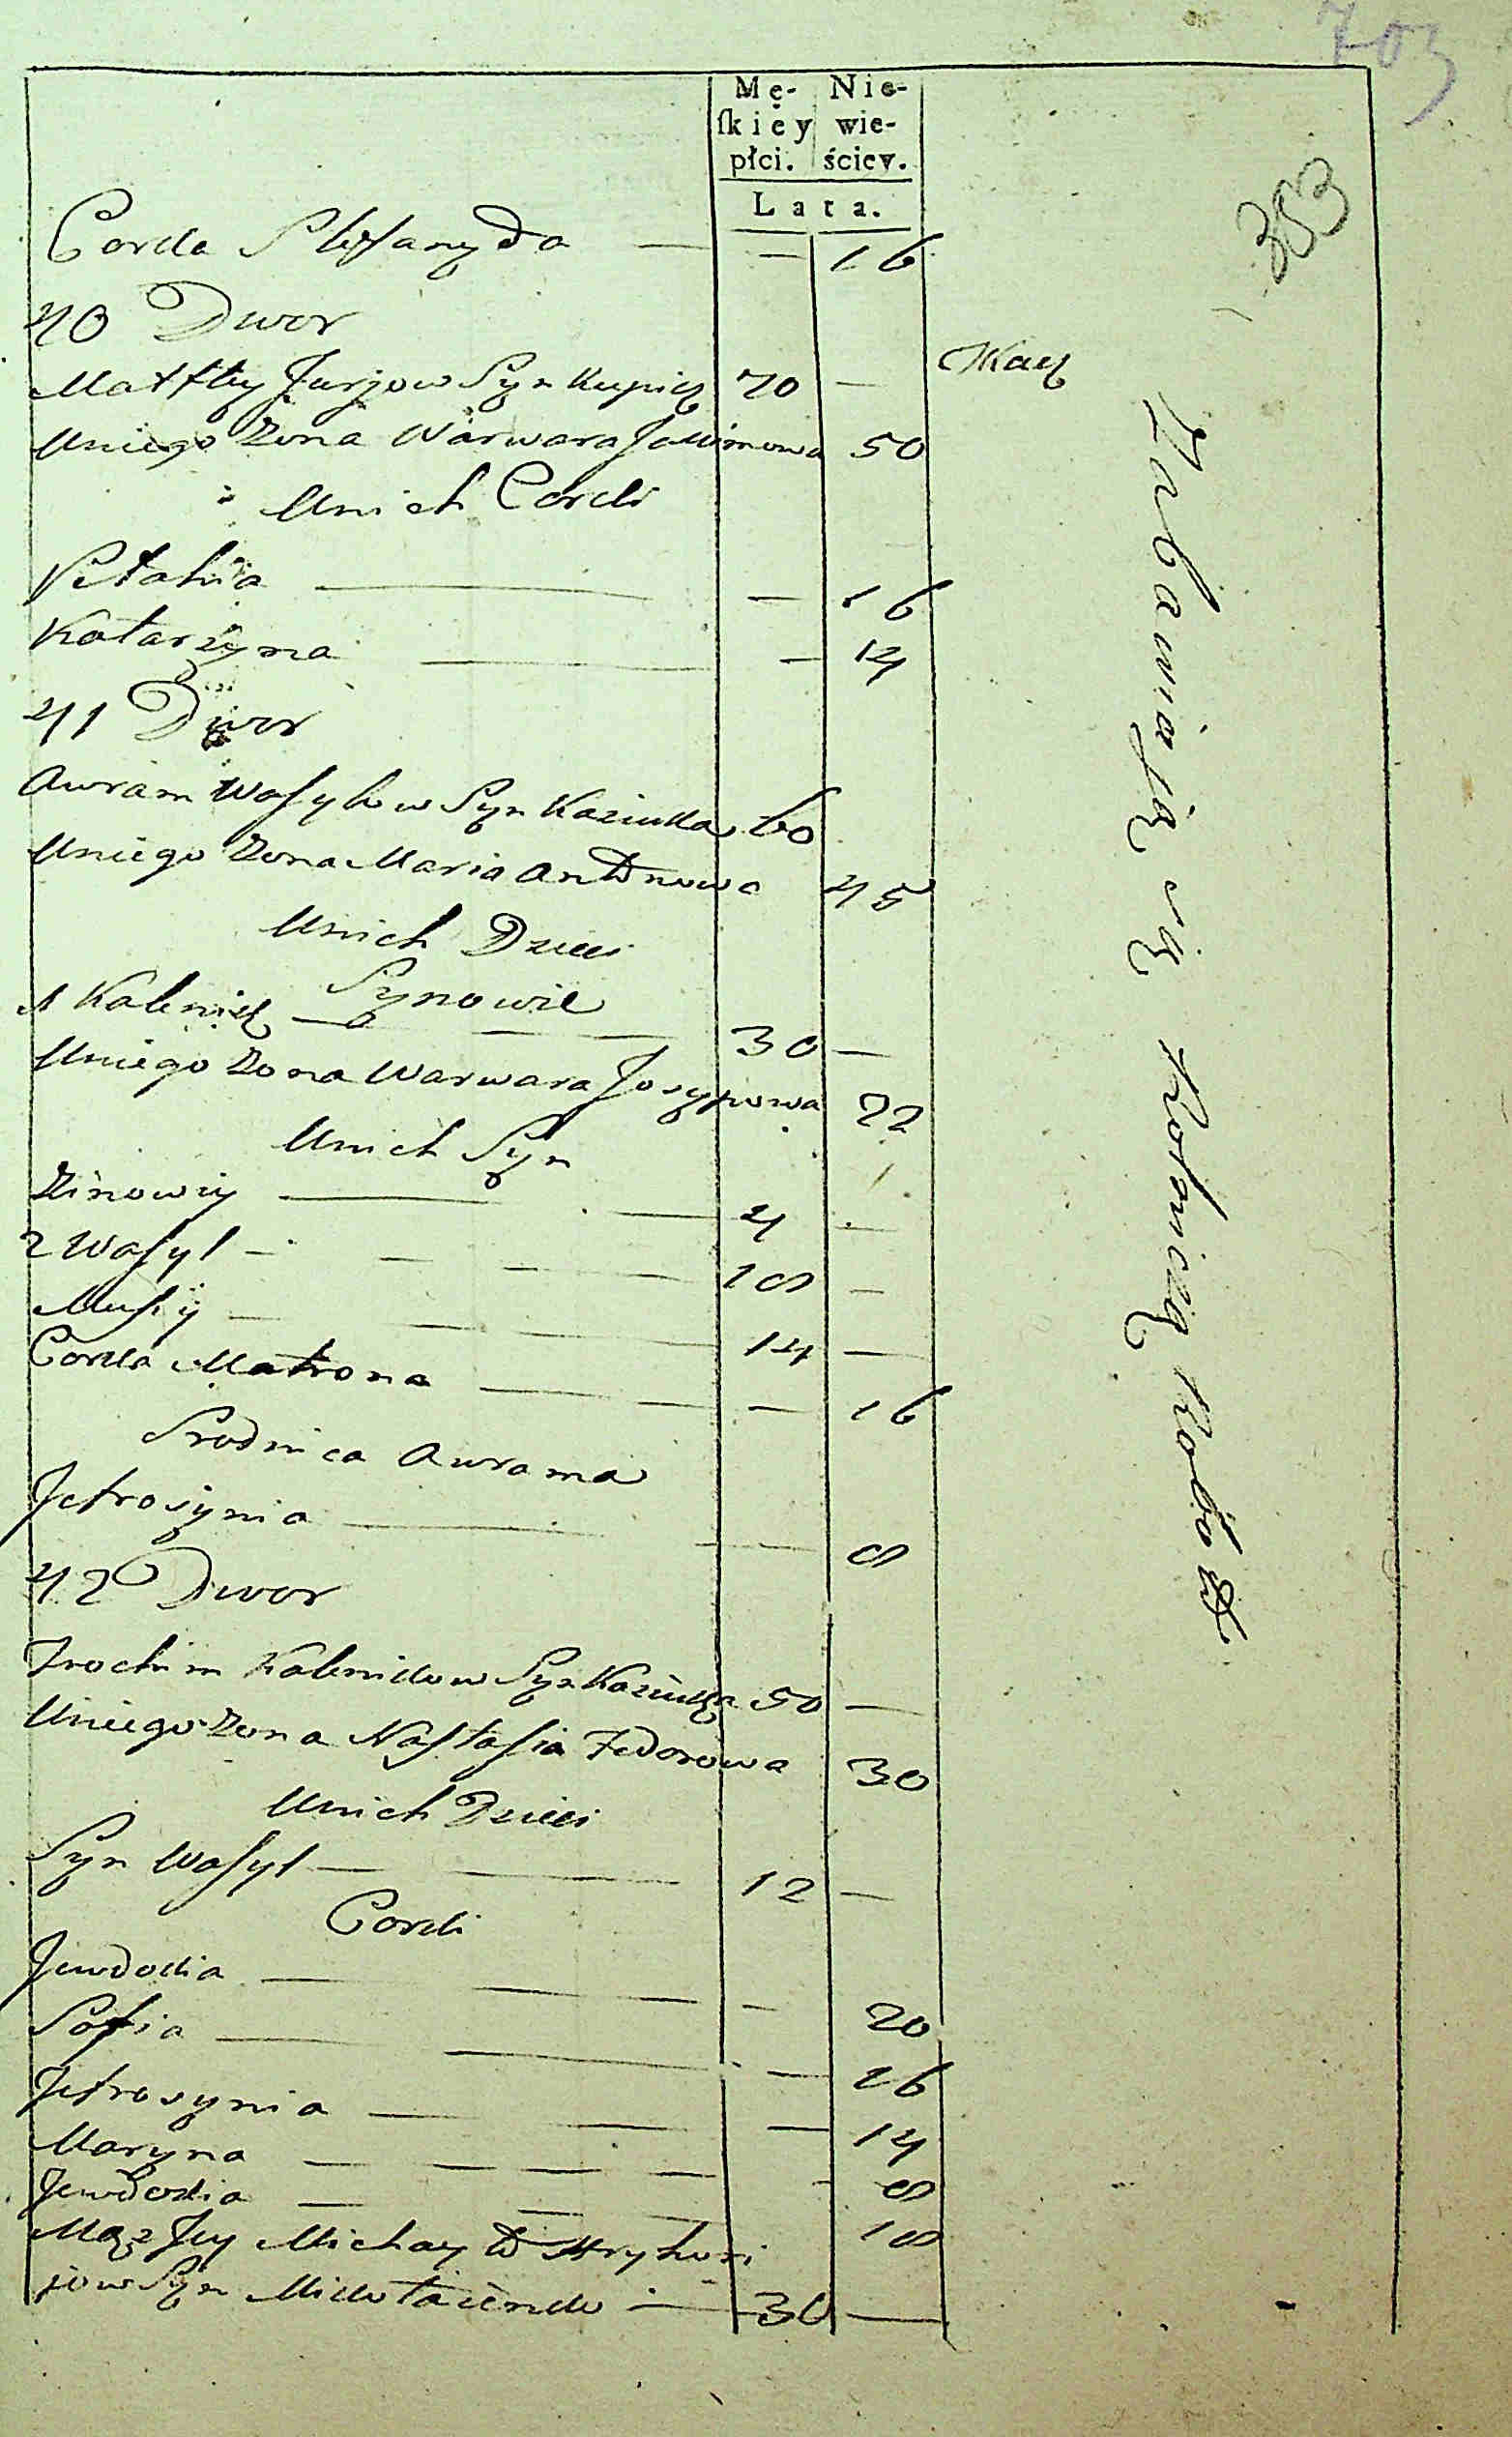 703
Mę- Nie-
ſkiey wie-
płci. ściey.
Lata.
353
Corka — — 16
40 Dwor
Matfiy Jurjow Syn Kupicz 70 — Tkacz
Uniego Zona Warwara Jakimowa 50
Unich Corki
Pełahia — — 16
Katarzyna — — 14
41 Dwor
Awram Wasylow Syn Kaziuka 60
Uniego Zona Maria Antonowa 45
Unich Dzieci
Synowie
1 Kalenik — — 30 —
Uniego Zona Warwara Josypowa 22
Unich Syn
Zinowiy — — 4 —
2 Wasyl — — — 18 —
Musiy — — 14 —
Corka Matrona — — — 16
Srodnica Awrama
Jefrosynia — — 8
42 Dwor
Trochim Kalenikow Syn Kaziuka 50 —
Uniego Zona Nastasia Fedorowa 30
Unich Dzieci
Syn Wasyl — — 12 —
Corki
Jewdokia — — — 20
Sofia — — — 16
Jefrosynia — — — 14
Maryna — — — — 8
Jewdokia — — — 18
Mąz Jey Michayło Hryhori
jow Syn Mikołaienko — 30 —
Zabawiaią się Rolniczą Robotą